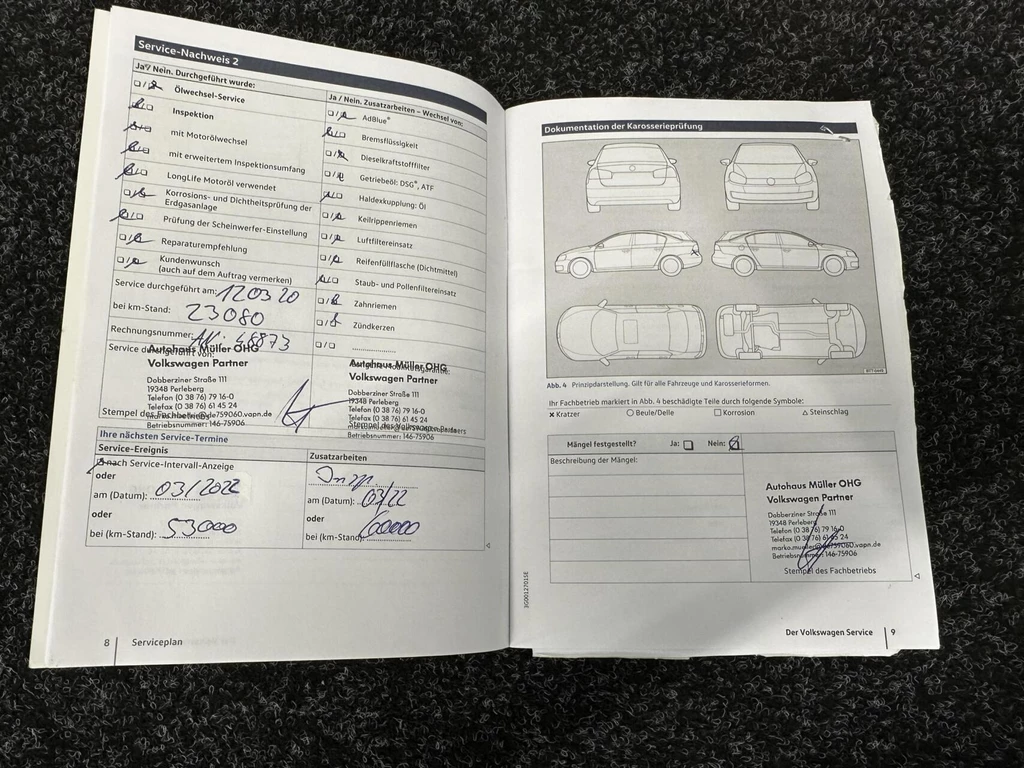 Service-Nachweis 2
Ja / Nein. Durchgeführt wurde:
Ölwechsel-Service
Inspektion
mit Motorölwechsel
mit erweitertem Inspektionsumfang
LongLife Motoröl verwendet
Korrosions- und Dichtheitsprüfung der
Erdgasanlage
Prüfung der Scheinwerfer-Einstellung
Reparaturempfehlung
Kundenwunsch
(auch auf dem Auftrag vermerken)
Ja / Nein. Zusatzarbeiten – Wechsel von:
AdBlue®
Bremsflüssigkeit
Dieselkraftstofffilter
Getriebeöl: DSG®, ATF
Haldexkupplung: Öl
Keilrippenriemen
Luftfiltereinsatz
Reifenfüllflasche (Dichtmittel)
Staub- und Pollenfiltereinsatz
Zahnriemen
Zündkerzen
Service durchgeführt am: 120320
bei km-Stand: 23080
Rechnungsnummer: 48873
Service durchgeführt von:
Autohaus Müller OHG
Volkswagen Partner
Dobberziner Straße 111
19348 Perleberg
Telefon (0 38 76) 79 16-0
Telefax (0 38 76) 61 45 24
Betriebsnummer: 146-75906
Stempel des Fachbetriebs
Autohaus Müller OHG
Volkswagen Partner
Dobberziner Straße 111
19348 Perleberg
Telefon (0 38 76) 79 16-0
Telefax (0 38 76) 61 45 24
Betriebsnummer: 146-75906
Ihre nächsten Service-Termine
Service-Ereignis
nach Service-Intervall-Anzeige
oder
am (Datum): 03/2022
oder
bei (km-Stand): 53000
Zusatzarbeiten
Insp.
am (Datum): 03/22
oder
bei (km-Stand) 60000
8 Serviceplan
Dokumentation der Karosserieprüfung
Abb. 4 Prinzipdarstellung. Gilt für alle Fahrzeuge und Karosserieformen.
Ihr Fachbetrieb markiert in Abb. 4 beschädigte Teile durch folgende Symbole:
x Kratzer ○ Beule/Delle □ Korrosion △ Steinschlag
Mängel festgestellt? Ja: Nein:
Beschreibung der Mängel:
Autohaus Müller OHG
Volkswagen Partner
Dobberziner Straße 111
19348 Perleberg
Telefon (0 38 76) 79 16-0
Telefax (0 38 76) 61 45 24
marko.mueller@de759060.vapn.de
Betriebsnummer: 146-75906
Stempel des Fachbetriebs
3G0012701SE
Der Volkswagen Service 9